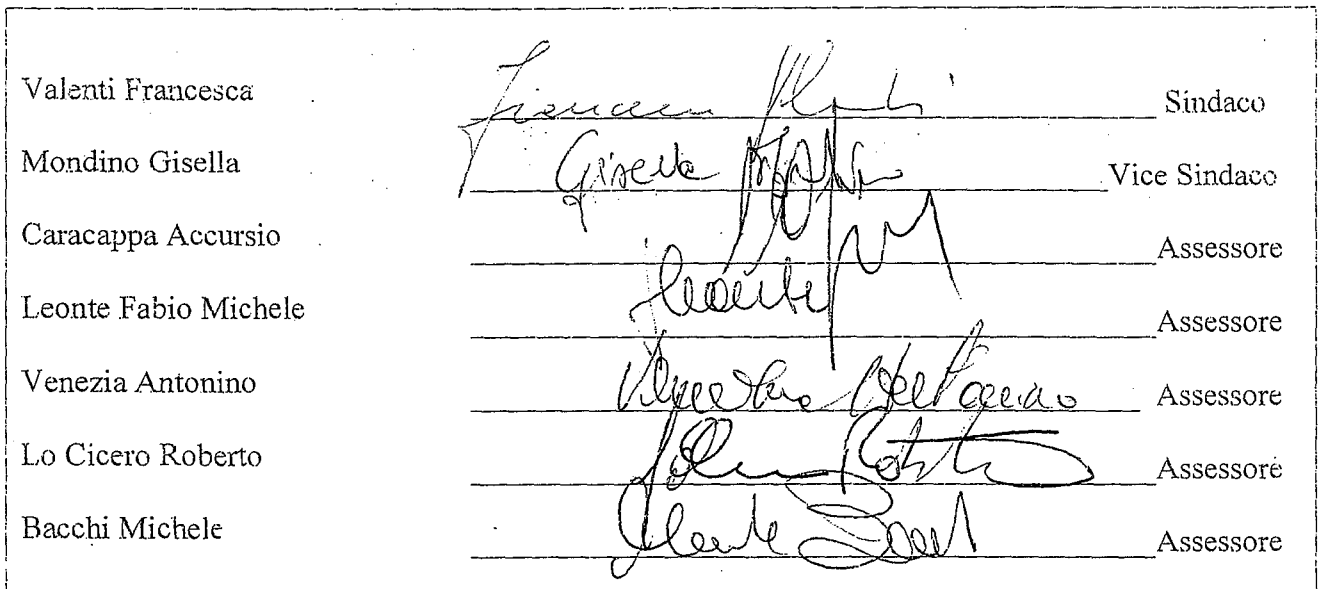 Valenti Francesca Sindaco
Mondino Gisella Gisella Vice Sindaco
Caracappa Accursio Assessore
Leonte Fabio Michele Assessore
Venezia Antonino Assessore
Lo Cicero Roberto Assessore
Bacchi Michele Assessore